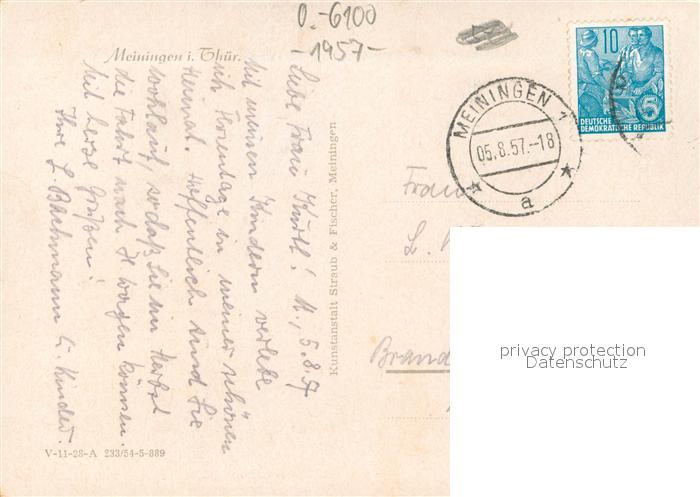 0.-6100
-1957-
Meiningen i. Thür.
Liebe Frau M., 5.8.57
Mit meinen Kindern verlebe
ich Urlaubstage in meiner schönen
Heimat. Hoffentlich sind Sie
wohlauf, sodaß Sie im Herbst
die Fahrt nach H wagen können.
Mit herzl. Grüßen!
Ihre L. u. Kinder.
Kunstanstalt Straub & Fischer, Meiningen
V-11-28-A 233/54-5-889
MEININGEN 1
05.8.57.-18
a
10
5
DEUTSCHE
DEMOKRATISCHE REPUBLIK
Frau
L.
Brand
privacy protection
Datenschutz